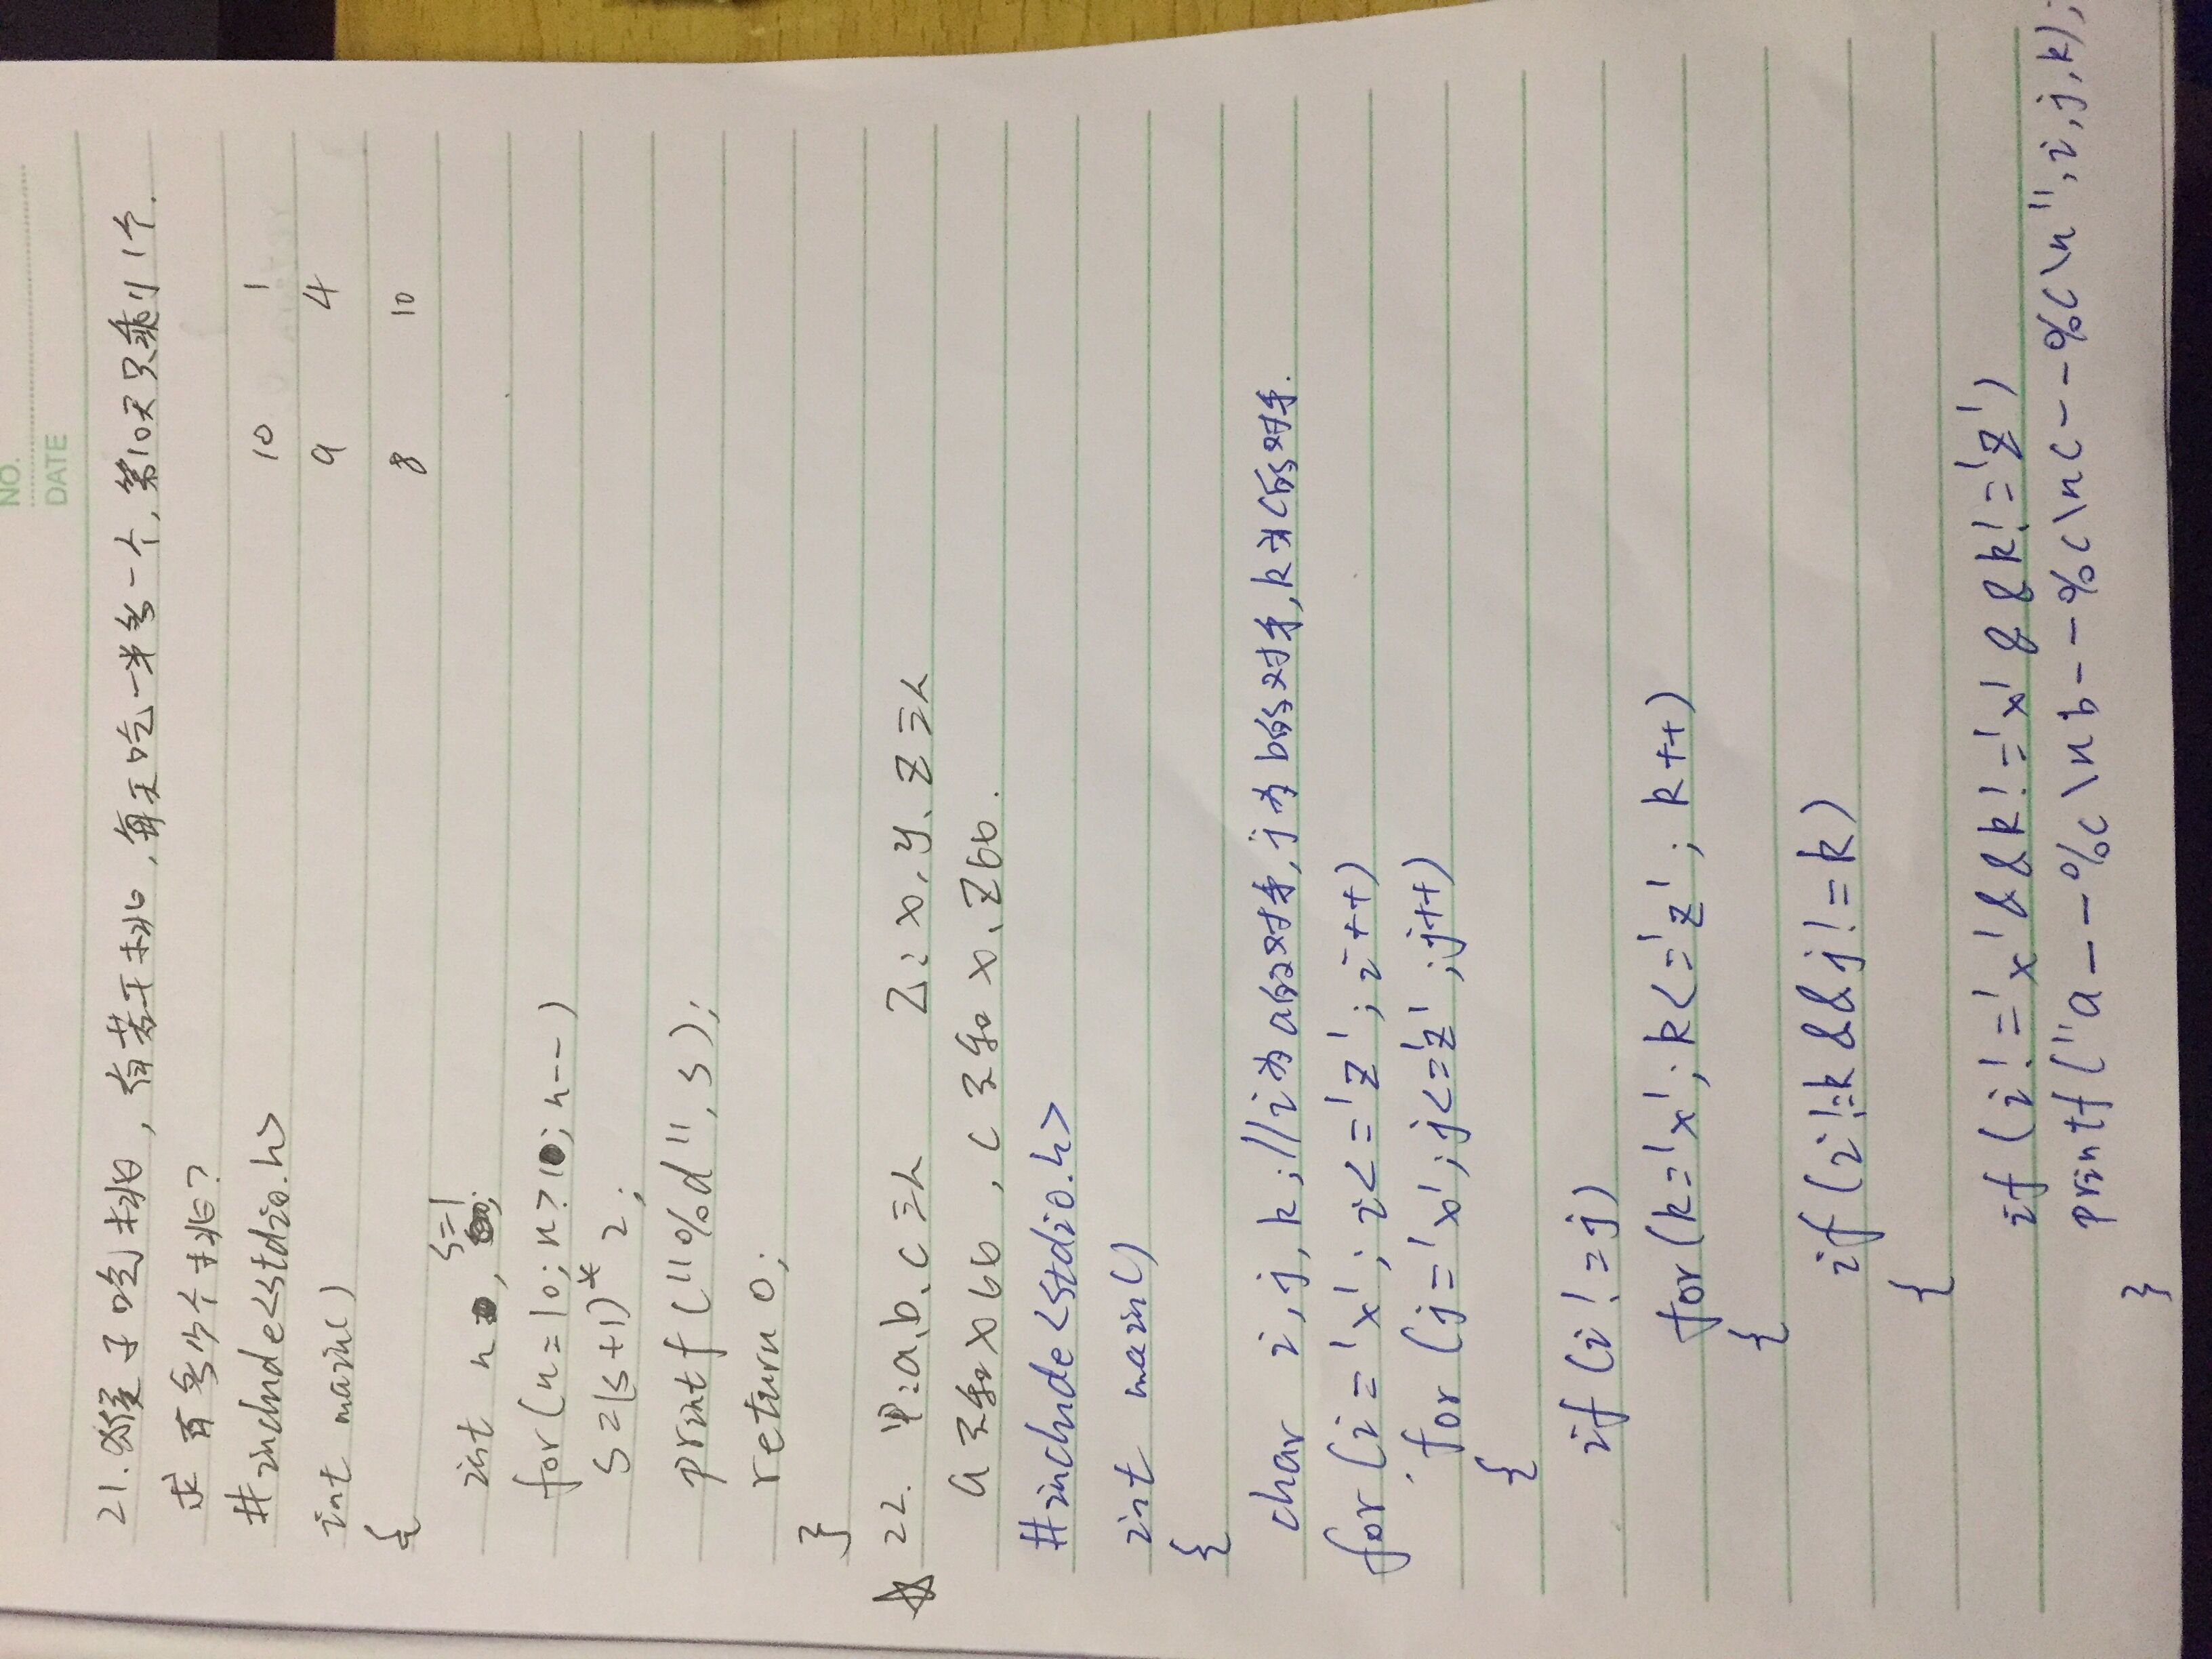 NO.
DATE
21.猴子吃桃,有若干桃,每天吃一半多一个,第10天只剩1个.
求有多少个桃?
#include<stdio.h> 10 1
int main() 9 4
{ 8 10
int n, s=1;
for(n=10;n>1;n--)
s=(s+1)*2;
printf("%d",s);
return 0;
}
☆22. 甲:a、b、c三人 乙:x、y、z三人
a不和x比,c不和x、z比.
#include<stdio.h>
int main()
{
char i,j,k;//i为a的对手,j为b的对手,k为c的对手.
for(i='x';i<='z';i++)
for(j='x';j<='z';j++)
{
if(i!=j)
for(k='x';k<='z';k++)
{
if(i!=k&&j!=k)
{
if(i!='x'&&k!='x'&&k!='z')
printf("a--%c\nb--%c\nc--%c\n",i,j,k);
}